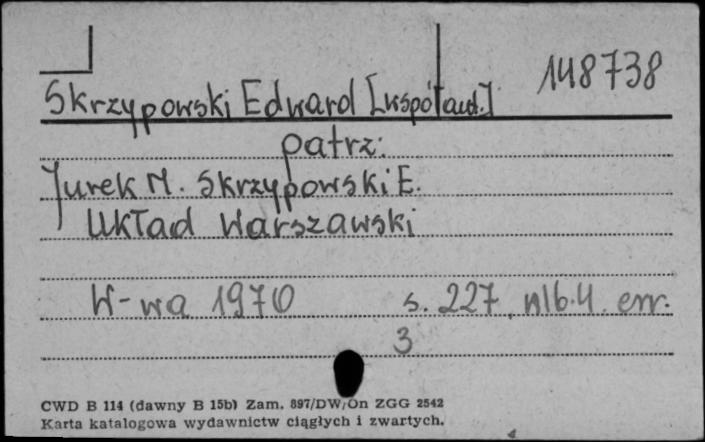 148738
Skrzypowski Edward [współaut.]
patrz:
Jurek M. Skrzypowski E.
Układ Warszawski
W-wa 1970 s. 227, nlb. 4. err.
3
CWD B 114 (dawny B 15b) Zam. 897/DW/On ZGG 2542
Karta katalogowa wydawnictw ciągłych i zwartych.